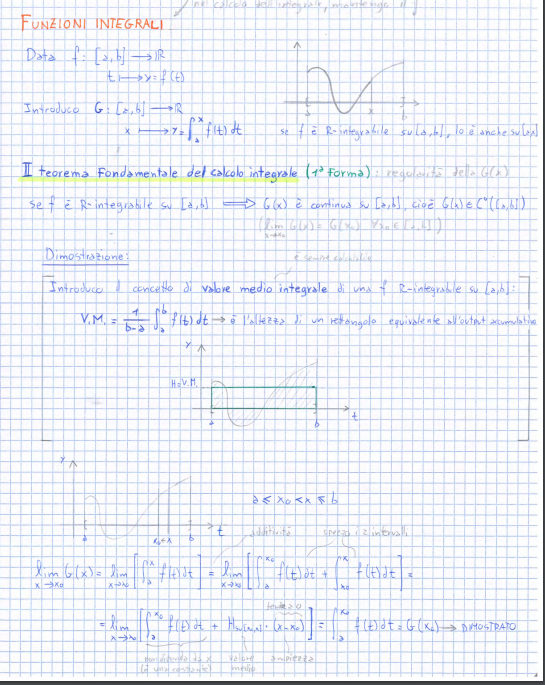 nel calcolo dell'integrale, mantengo il
FUNZIONI INTEGRALI
Data f: [a,b] → ℝ
t ↦ y = f(t)
Introduco G: [a,b] → ℝ
x ↦ y = ∫_a^x f(t) dt se f è R-integrabile su [a,b], lo è anche su [a,x]
x b
II teorema Fondamentale del calcolo integrale (1ª forma): regolarità della G(x)
se f è R-integrabile su [a,b] ⟹ G(x) è continua su [a,b], cioè G(x) ∈ C⁰([a,b])
(lim_{x→x₀} G(x) = G(x₀) ∀x₀ ∈ [a,b])
Dimostrazione:
è sempre calcolabile
Introduco il concetto di valore medio integrale di una f R-integrabile su [a,b]:
V.M. = 1/(b-a) ∫_a^b f(t) dt → è l'altezza di un rettangolo equivalente all'output accumulativo
y
H=V.M.
a b t
y
a x₀ x b t
a ≤ x₀ < x ≤ b
additività spezzo i 2 intervalli
lim_{x→x₀} G(x) = lim_{x→x₀} [∫_a^x f(t) dt] = lim_{x→x₀} [∫_a^{x₀} f(t) dt + ∫_{x₀}^x f(t) dt] =
tende a 0
= lim_{x→x₀} [∫_a^{x₀} f(t) dt + H_{su[x₀,x]} · (x-x₀)] = ∫_a^{x₀} f(t) dt = G(x₀) → DIMOSTRATO
non dipende da x valore ampiezza
(è una costante) medio